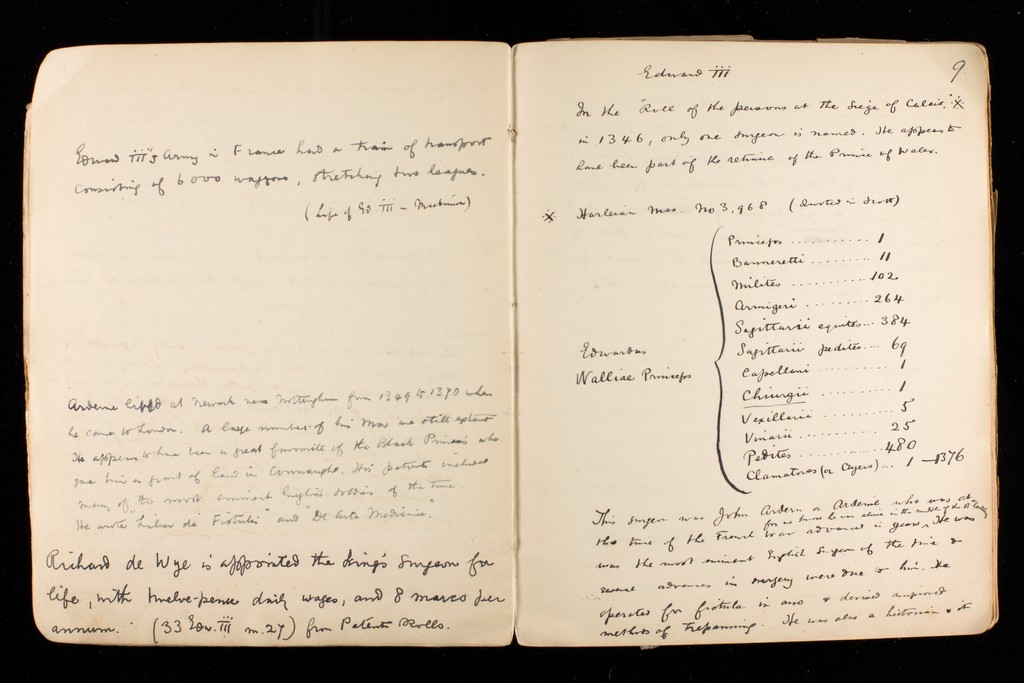 Edward III's Army in France had a train of transport
consisting of 6000 waggons, stretching two leagues.
(Life of Ed III -
Arderne lived at Newark near Nottingham from 1349 to 1370 when
he came to London. A large number of his Mss are still extant
He appears to have been a great favourite of the Black Prince's who
gave him a grant of land in Connaught. His patients included
many of the most eminent English soldiers of the time.
He wrote "Liber de Fistulis" and "De Arte Medicinæ".
Richard de Wye is appointed the King's Surgeon for
life, with twelve-pence daily wages, and 8 marcs per
annum. (33 Edw. III m. 27) from Patent Rolls.
9
Edward III
In the "Roll of the persons at the Siege of Calais," x
in 1346, only one surgeon is named. He appears to
have been part of the retinue of the Prince of Wales.
x Harleian Mss. No 3,968 (Quoted in Scott)
Edwardus
Walliae Princeps
Princeps ............ 1
Banneretti ......... 11
Milites ......... 102
Armigeri ......... 264
Sagittarii equites... 384
Sagittarii pedites.... 69
Capellani ......... 1
Chirurgii ......... 1
Vexillarii .......... 5
Vinarii ........... 25
Pedites ............ 480
Clamatores (or Cryers)... 1 - 1376
This surgeon was John Ardern or Arderne who was at
the time of the French War advanced in years, for we know he was alive in the middle of the 14 Century. He was
was the most eminent English Surgeon of the time &
several advances in surgery were due to him. He
operated for fistula in ano & devised improved
methods of trepanning. He was also a historian & it